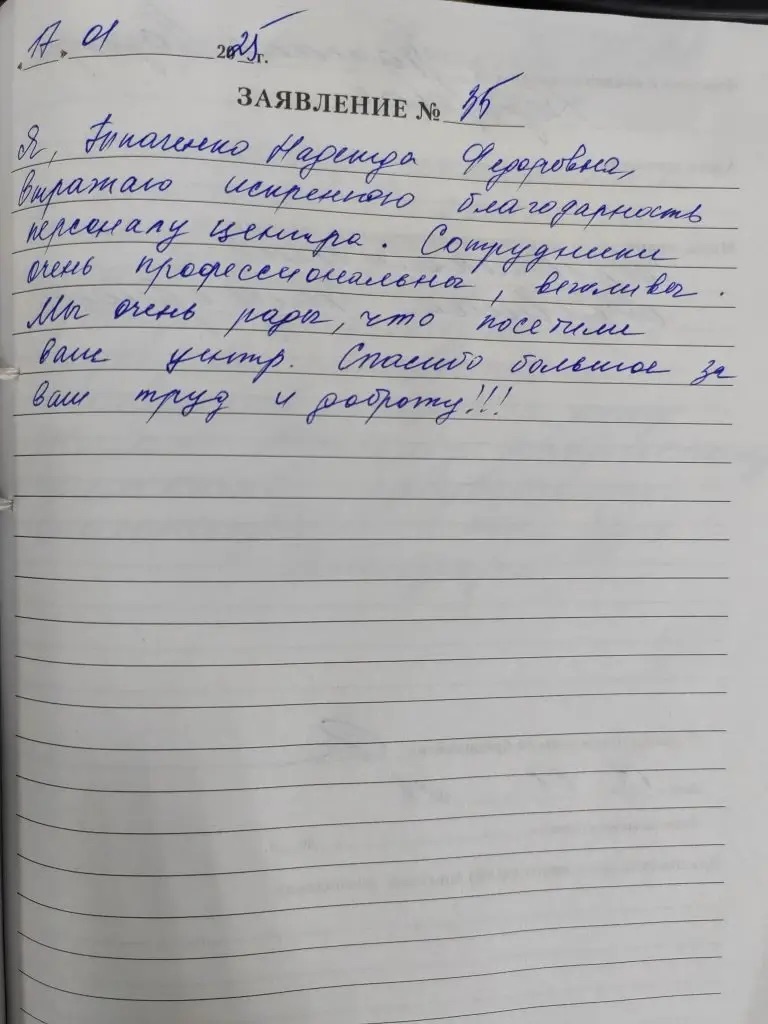 « 17 » 01 2025 г.
ЗАЯВЛЕНИЕ № 35
Я, Надежда Федоровна,
выражаю искреннюю благодарность
персоналу центра. Сотрудники
очень профессиональны, вежливы.
Мы очень рады, что посетили
ваш центр. Спасибо большое за
ваш труд и доброту!!!